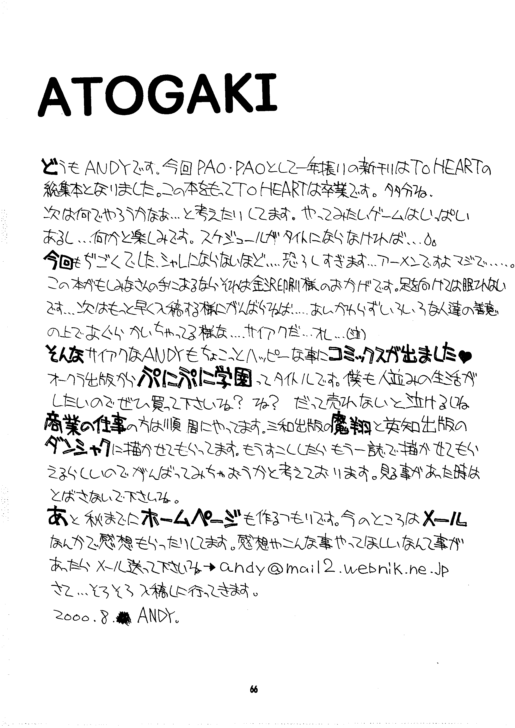 ATOGAKI
どうもANDYです。今回PAO・PAOとして一年振りの新刊はTO HEARTの
総集本となりました。この本をもってTO HEARTは卒業です。多分ね。
次は何でやろうかなあ…と考えたりしてます。やってみたいゲームはいっぱい
あるし…何かと楽しみです。スケジュールがタイトにならなければ…
今回もぢごくでした、シャレにならないほど…恐ろしすぎます…アーメンですよマジで…。
この本がもしみなさんの手にあるなら、それは金沢印刷様のおかげです。足を向けては眠れない
です…次はもっと早く入稿する様にがんばらねば…あいかわらずいろいろな人達の善意
の上であぐらかいちゃってる様な…サイアクだ…オレ…
そんなサイアクなANDYもちょこっとハッピーな事にコミックスが出ました♥
オークラ出版からぷにぷに学園ってタイトルです。僕も人並みの生活が
したいのでぜひ買って下さいね?ね?だって売れないと泣けるしね
商業の仕事の方は順調にやってます。三和出版の魔翔と英知出版の
ダンシャクに描かせてもらってます。もうすこししたらもう一誌で描かせてもら
えるらしいのでがんばってみちゃおうかと考えております。見る事があった時は
とばさないで下さいね。
あと秋までにホームページも作るつもりです。今のところはメール
なんかで感想もらったりしてます。感想やこんな事やってほしいなんて事が
あったらメール送って下さいね→andy@mail2.webnik.ne.jp
さて…そろそろ入稿に行ってきます。
2000.8. ANDY.
66